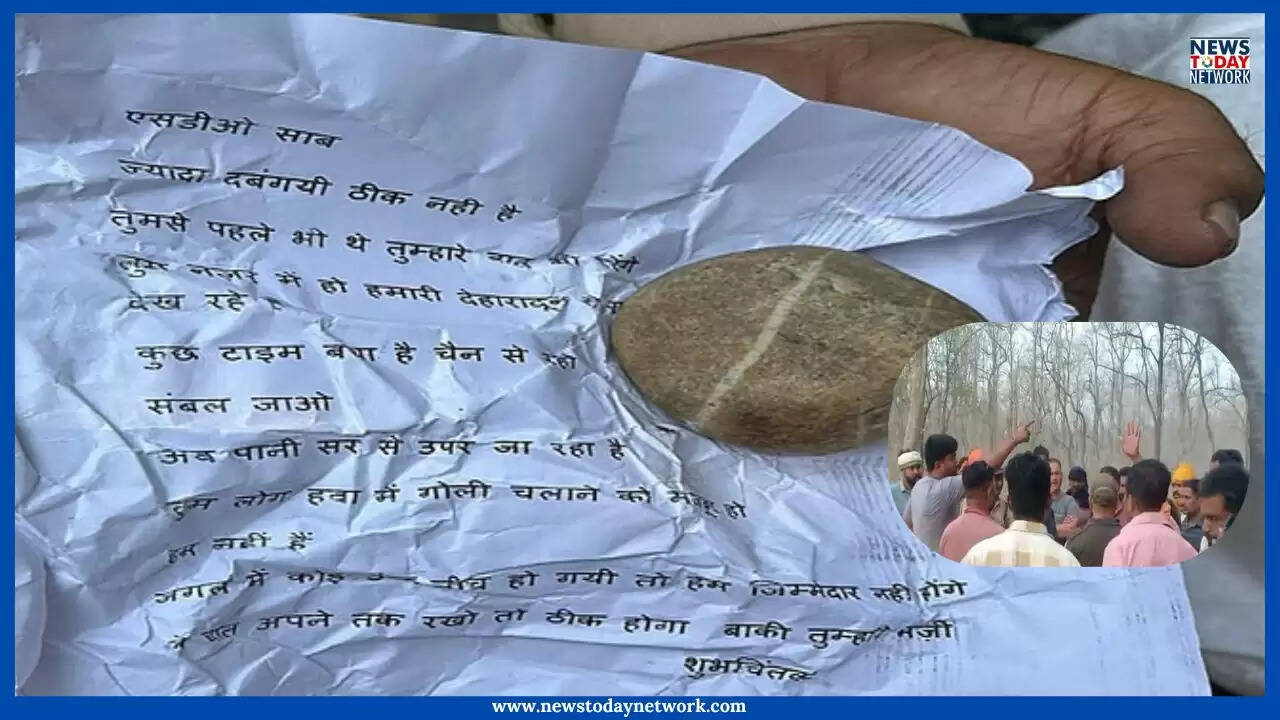 NEWS
TODAY
NETWORK
एसडीओ साब
ज्यादा दबंगयी ठीक नही है
तुमसे पहले भी थे तुम्हारे
तुम नज़र में हो हमारी
देख रहे
कुछ टाइम बचा है चैन से रहो
संबल जाओ
अब पानी सर से उपर जा रहा है
तुम लोग हवा में गोली चलाने को हो
हम नहीं हैं
जंगल में कोइ हो गयी तो हम जिम्मेदार नही होंगे
अपने तक रखो तो ठीक होगा बाकी
शुभचिंतक
www.newstodaynetwork.com